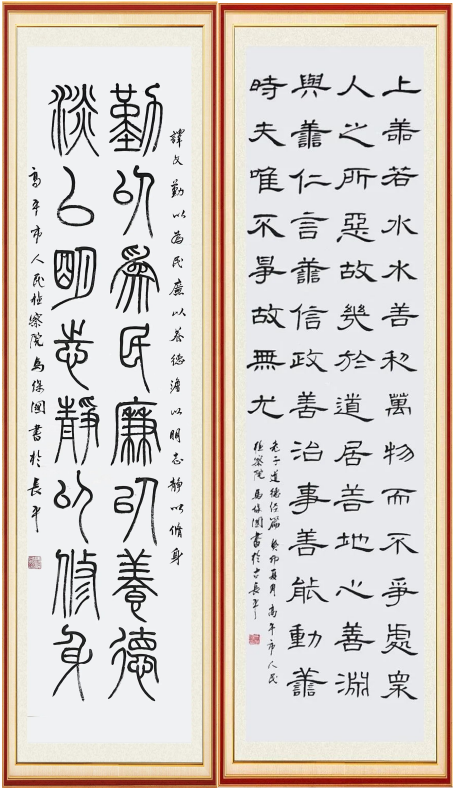 上善若水水善利萬物而不爭處眾
人之所惡故幾於道居善地心善淵
與善仁言善信政善治事善能動善
時夫唯不爭故無尤
老子道德经篇 癸卯夏月 高平市人民
检察院馬保國書於古長平
譯文 勤以為民廉以養德澹以明志靜以脩身
勤以為民廉以養德
淡以明志靜以修身
高平市人民检察院馬保國書於長平